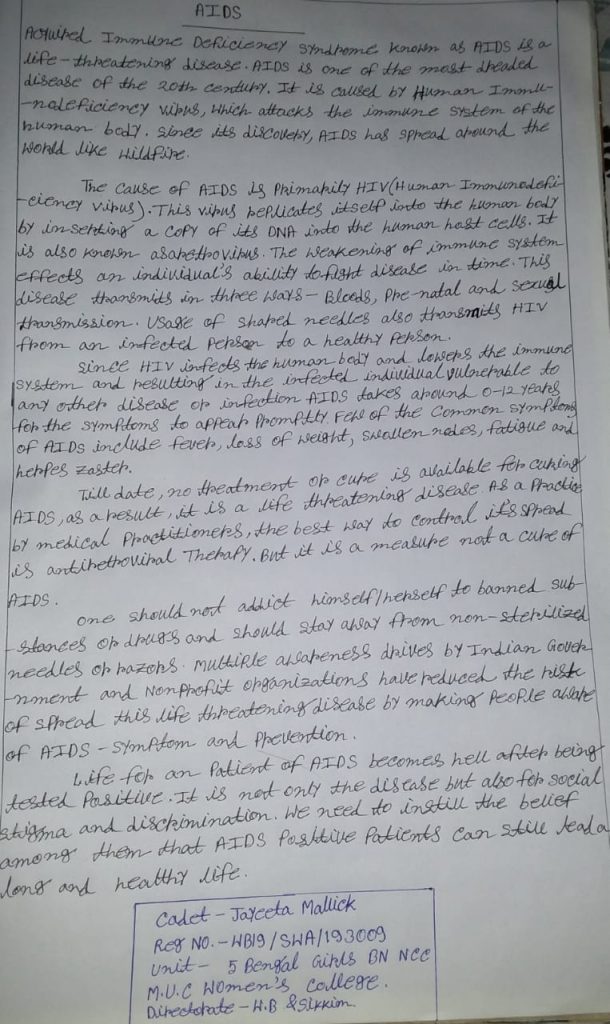 AIDS
Acquired Immune Deficiency Syndrome known as AIDS is a
life-threatening disease. AIDS is one of the most dreaded
disease of the 20th century. It is caused by Human Immu-
-nodeficiency virus, which attacks the immune system of the
human body. Since its discovery, AIDS has spread around the
world like wildfire.
The cause of AIDS is primarily HIV (Human Immunodefi-
-ciency virus). This virus replicates itself into the human body
by inserting a copy of its DNA into the human host cells. It
is also known as a retrovirus. The weakening of immune system
effects an individual's ability to fight disease in time. This
disease transmits in three ways - Bloods, Pre-natal and sexual
transmission. Usage of shared needles also transmits HIV
from an infected person to a healthy person.
Since HIV infects the human body and lowers the immune
system and resulting in the infected individual vulnerable to
any other disease or infection AIDS takes around 0-12 years
for the symptoms to appear promptly. Few of the common symptoms
of AIDS include fever, loss of weight, swollen nodes, fatigue and
herpes zaster.
Till date, no treatment or cure is available for curing
AIDS, as a result, it is a life threatening disease. As a practice
by medical practitioners, the best way to control it's spread
is antiretroviral Therapy. But it is a measure not a cure of
AIDS.
One should not addict himself/herself to banned sub-
-stances or drugs and should stay away from non-sterilized
needles or razors. Multiple awareness drives by Indian Gover-
-nment and Nonprofit organizations have reduced the risk
of spread this life threatening disease by making people aware
of AIDS - symptom and prevention.
Life for an patient of AIDS becomes hell after being
tested Positive. It is not only the disease but also for social
stigma and discrimination. We need to instill the belief
among them that AIDS Positive Patients can still lead a
long and healthy life.
Cadet - Jayeeta Mallick
Reg NO. - WB19/SWA/193009
Unit - 5 Bengal Girls BN NCC
M.U.C Women's College.
Directorate - W.B & Sikkim.